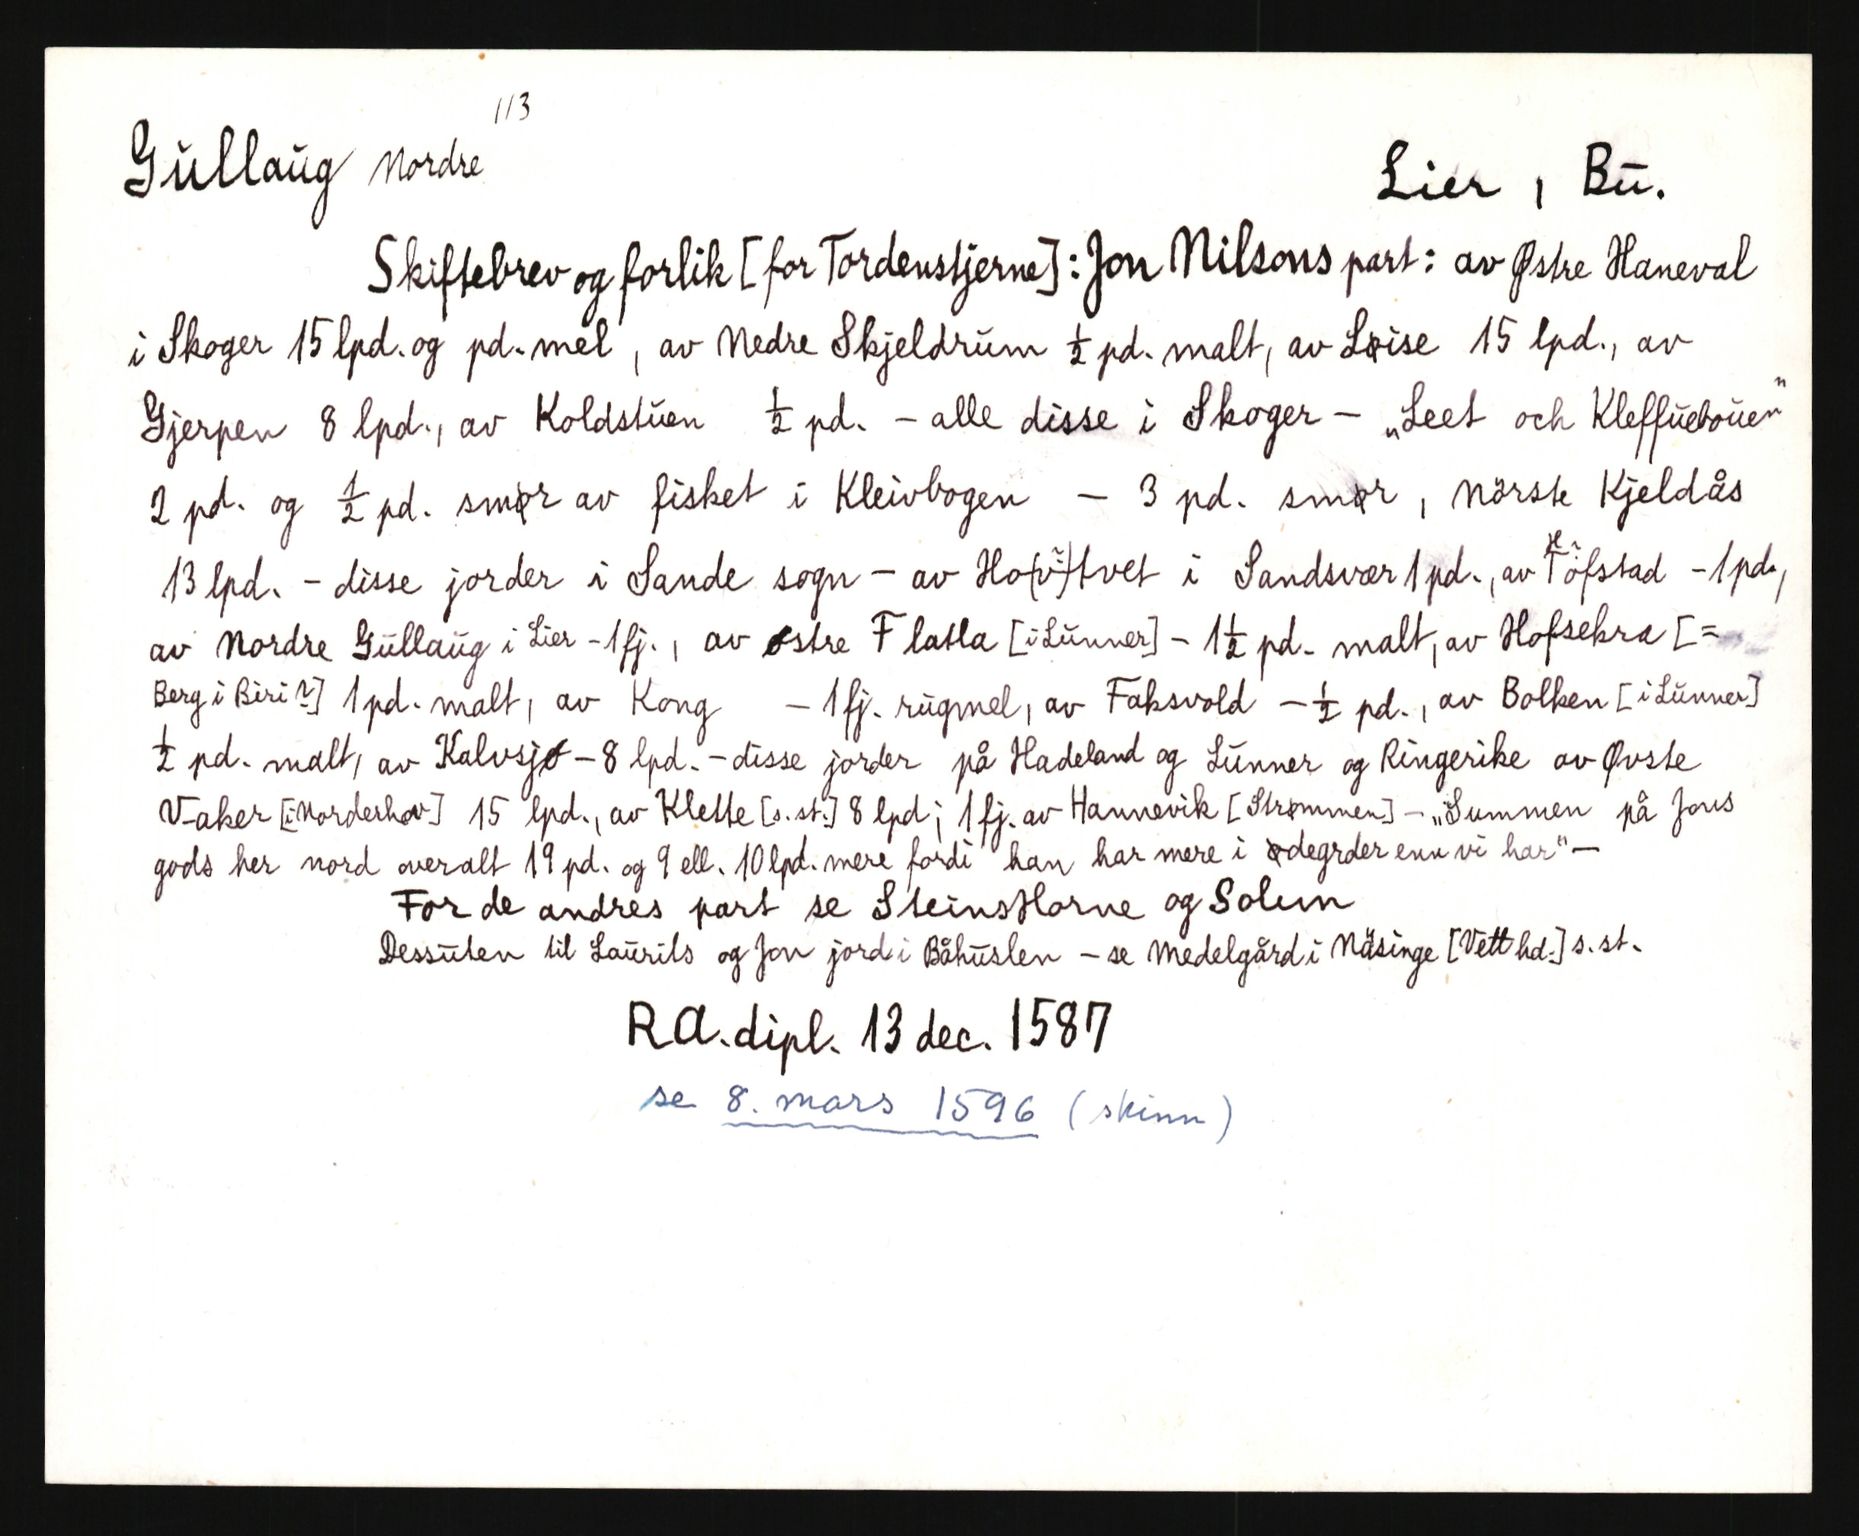 113
Gullaug Nordre
Lier, Bu.
Skiftebrev og forlik [for Tordenstjerne]: Jon Nilsons part: av Østre Haneval
i Skoger 15 lpd. og pd. mel, av Nedre Skjeldrum ½ pd. malt, av Løise 15 lpd., av
Gjerpen 8 lpd., av Koldstuen ½ pd. – alle disse i Skoger – „Leet och Kleffuebouen"
2 pd. og ½ pd. smør av fisket i Kleivbogen – 3 pd. smør, Nörste Kjeldås
13 lpd. – disse jorder i Sande sogn – av Ho(v?)tvet i Sandsvær 1 pd., av Töfstad – 1 pd.,
av Nordre Gullaug i Lier – 1 fj., av østre Flatla [i Lunner] – 1½ pd. malt, av Hofsekra [=
Berg i Biri?] 1 pd. malt, av Kong – 1 fj. rugmel, av Faksvold – ½ pd., av Bolken [i Lunner]
½ pd. malt, av Kalvsjø – 8 lpd. – disse jorder på Hadeland og Lunner og Ringerike av Øvste
V-aker [i Norderhov] 15 lpd., av Klette [s. st.] 8 lpd; 1 fj. av Hannevik [Strømmen] – „Summen på Jons
gods her nord overalt 19 pd. og 9 ell. 10 lpd. mere fordi han har mere i ødegrder enn vi har" –
For de andres part se SteinsHorne og Solum
Dessuten til Laurits og Jon jord i Båhuslen – se Medelgård i Näsinge [Vett hd.] s. st.
RA. dipl. 13 dec. 1587
se 8. mars 1596 (skinn)